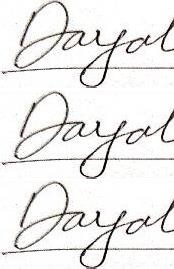 Dayal
Dayal
Dayal